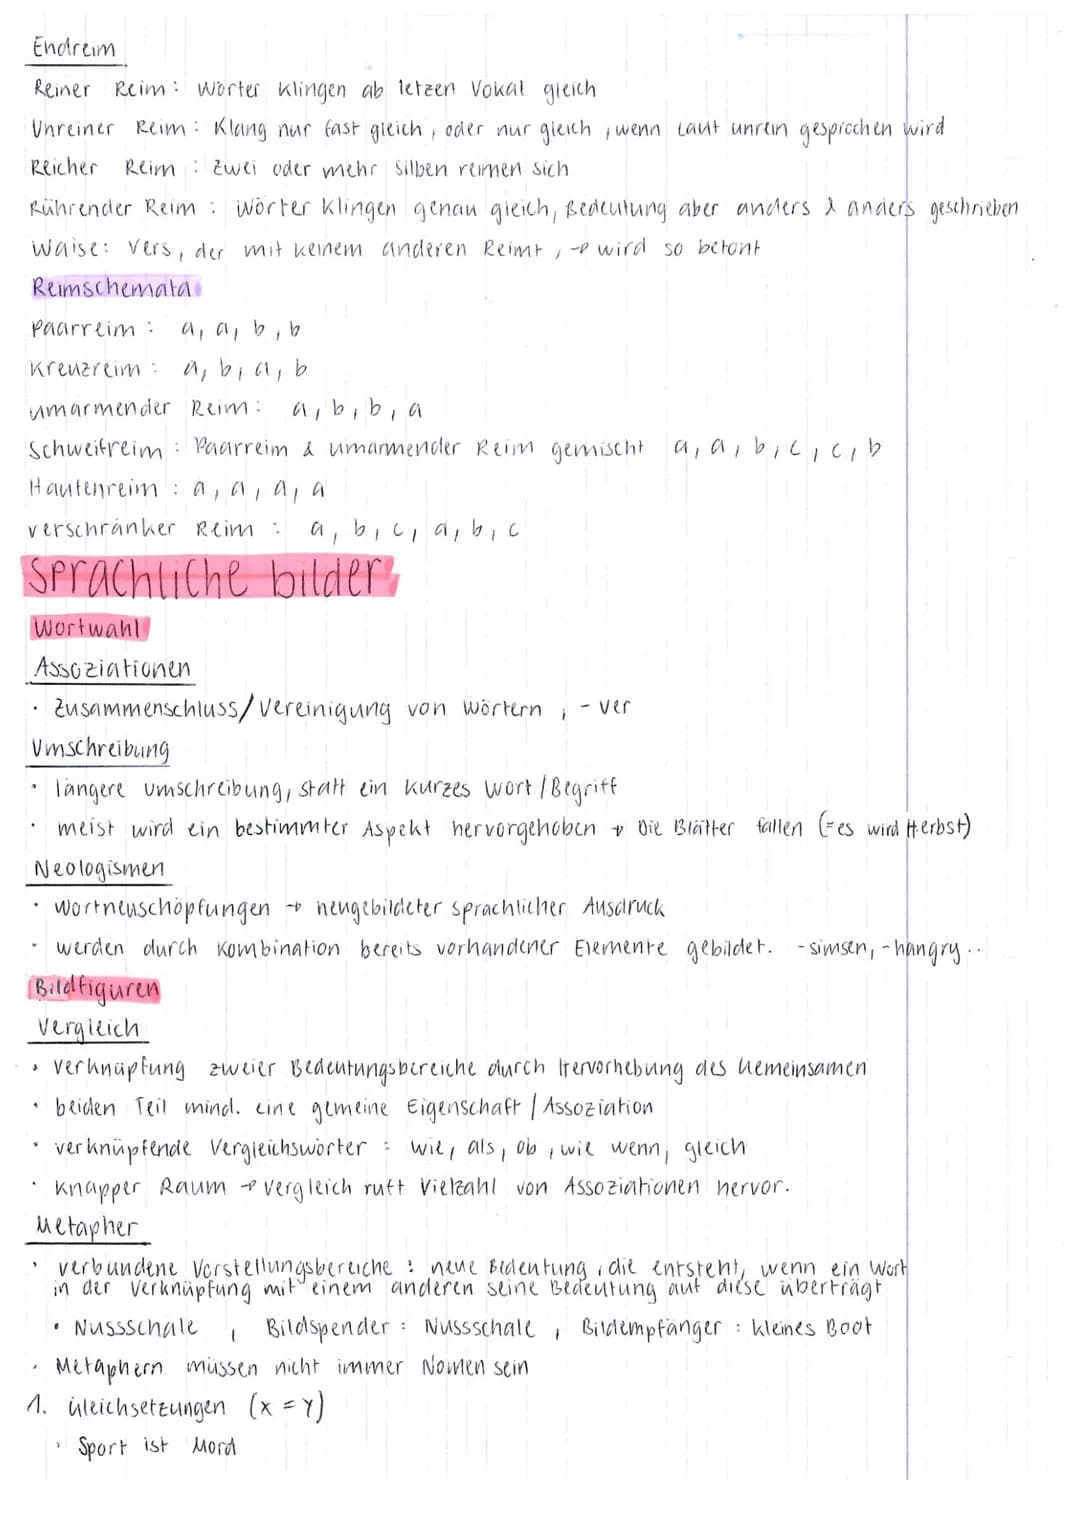 Endreim
Reiner Reim: Wörter klingen ab letzen Vokal gleich
Unreiner Reim: Klang nur fast gleich, oder nur gleich, wenn Laut unrein gesprochen wird
Reicher Reim: Zwei oder mehr Silben reimen sich
Rührender Reim: Wörter klingen genau gleich, Bedeutung aber anders & anders geschrieben
Waise: Vers, der mit keinem anderen Reimt, → wird so betont
Reimschemata
Paarreim: a, a, b, b
Kreuzreim: a, b, a, b
umarmender Reim: a, b, b, a
Schweifreim: Paarreim & umarmender Reim gemischt a, a, b, c, c, b
Haufenreim: a, a, a, a
verschränker Reim: a, b, c, a, b, c
Sprachliche bilder
Wortwahl
Assoziationen
· Zusammenschluss/Vereinigung von Wörtern, - ver
Umschreibung
· längere Umschreibung, statt ein kurzes Wort/Begriff
· meist wird ein bestimmter Aspekt hervorgehoben → Die Blätter fallen (=es wird Herbst)
Neologismen
· Wortneuschöpfungen → neugebildeter sprachlicher Ausdruck
· werden durch Kombination bereits vorhandener Elemente gebildet. -simsen, -hangry..
Bildfiguren
Vergleich
· Verknüpfung zweier Bedeutungsbereiche durch Hervorhebung des Gemeinsamen
· beiden Teil mind. eine gemeine Eigenschaft / Assoziation
· verknüpfende Vergleichswörter: wie, als, ob, wie wenn, gleich
· Knapper Raum → Vergleich ruft Vielzahl von Assoziationen hervor.
Metapher
· verbundene Vorstellungsbereiche: neue Bedeutung, die entsteht, wenn ein Wort
in der Verknüpfung mit einem anderen seine Bedeutung auf diese überträgt
· Nussschale, Bildspender: Nussschale, Bildempfänger: kleines Boot
· Metaphern müssen nicht immer Nomen sein
1. Gleichsetzungen (x = Y)
· Sport ist Mord